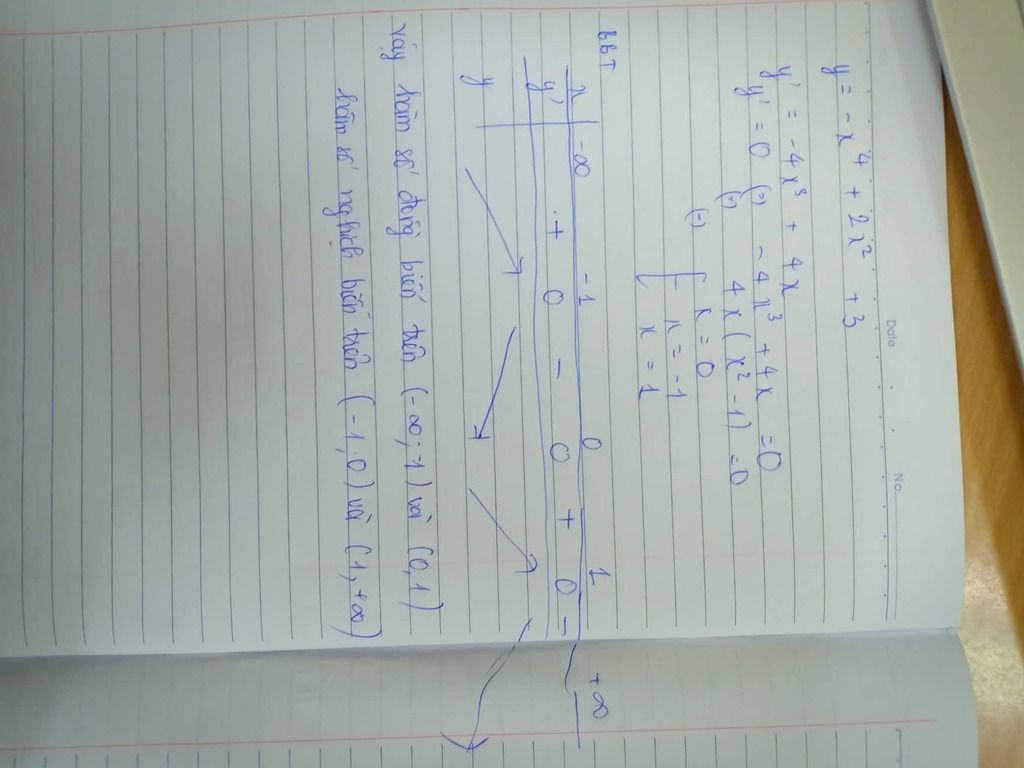 Date
No.
y = -x⁴ + 2x² + 3
y' = -4x³ + 4x
y' = 0 (=) -4x³ + 4x = 0
(=) 4x(x² - 1) = 0
(=) [ x = 0
x = -1
x = 1
BBT
x -∞ -1 0 1 +∞
y' + 0 - 0 + 0 -
y
vậy hàm số đồng biến trên (-∞; -1) và (0, 1)
hàm số nghịch biến trên (-1, 0) và (1, +∞)